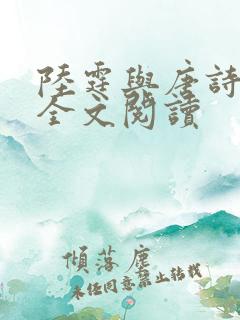 陸霆與唐詩
全文閱讀
傾落塵
未經同意禁止轉載